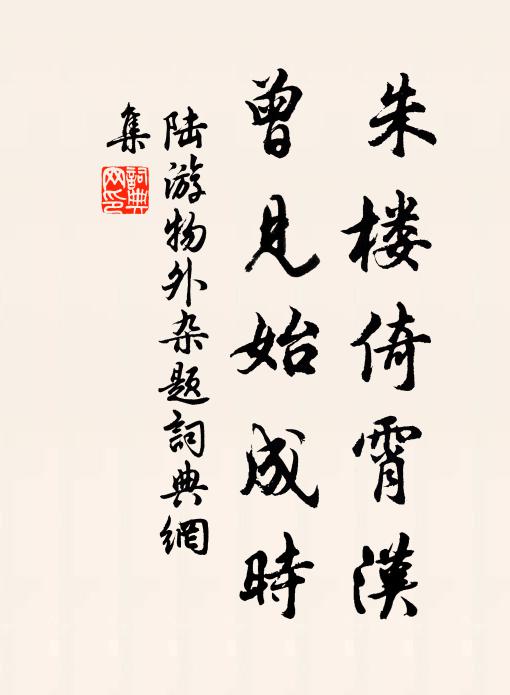 朱楼倚霄漢
曾见始成時
陆游物外杂题詞典網
集
詞典网印